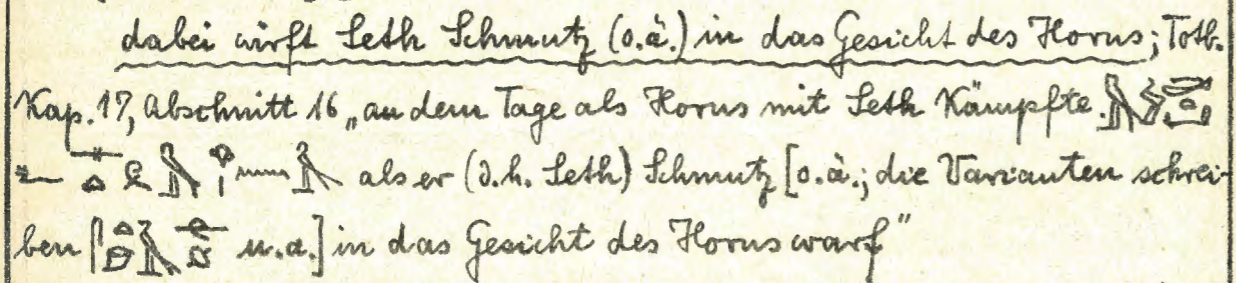 dabei wirft Seth Schmutz (o.ä.) in das Gesicht des Horus; Totb.
Kap. 17, Abschnitt 16 „an dem Tage als Horus mit Seth kämpfte
als er (d.h. Seth) Schmutz [o.ä.; die Varianten schrei-
ben u.a.] in das Gesicht des Horus warf“